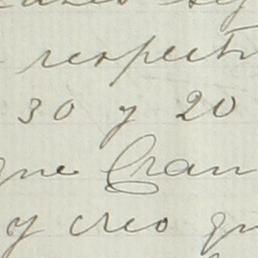 respect
30 y 20
que Gran
y creo qu